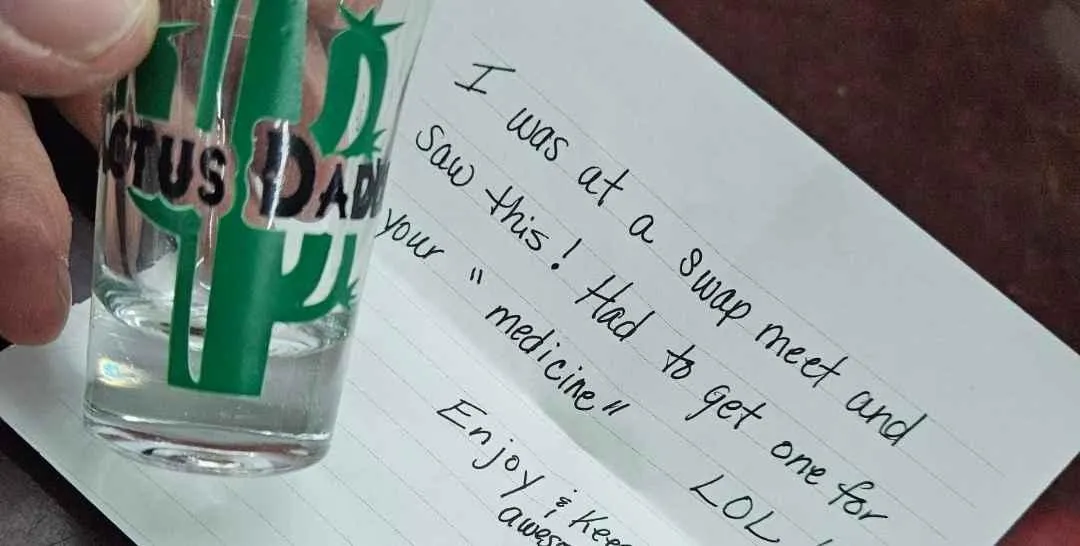 CTUS DADDY
I was at a swap meet and
saw this! Had to get one for
your "medicine" LOL!
Enjoy & Keep